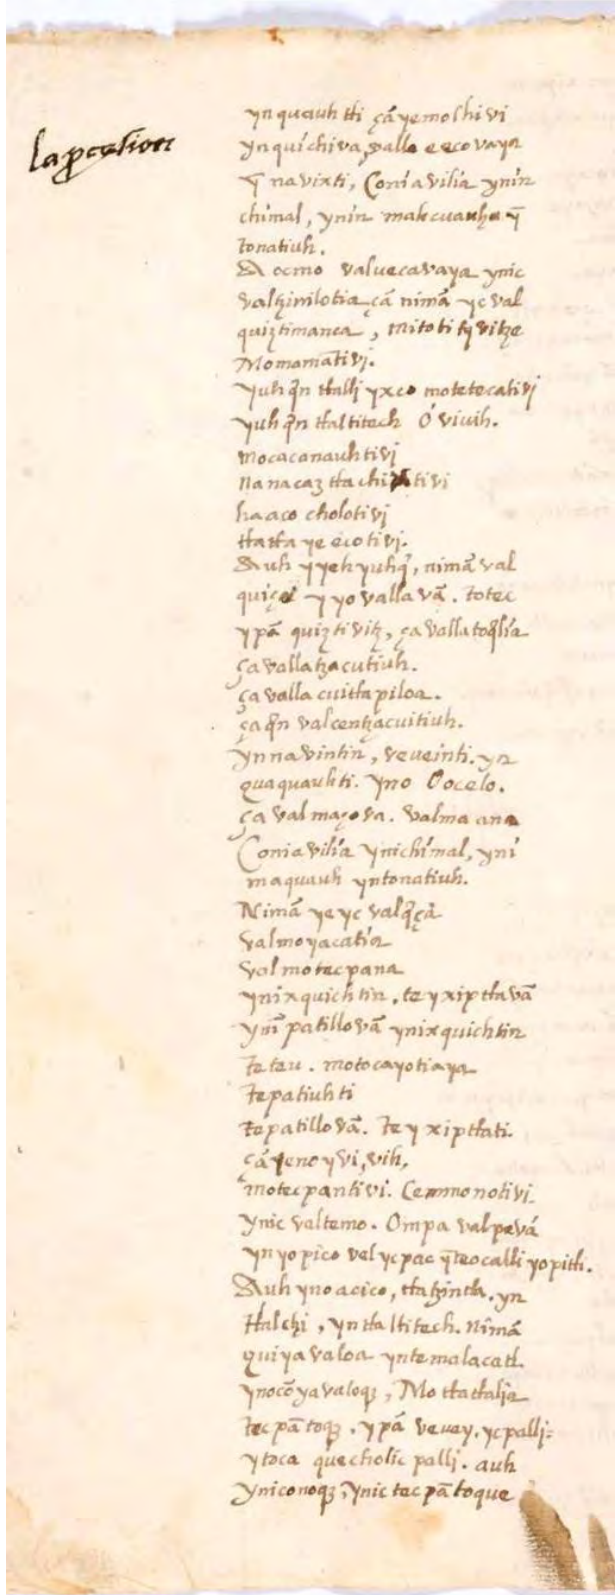 la p̱cesion
yn quauhtli çā ye mochivi
yn quichiva, valla eecovaya
ȳ navixti, Coniavilia ynin
chimal, ynin makcuauhe ȳ
tonatiuh.
A ocmo valuecavaya ynic
valtzinilotia çā nimā yc val
quiztimanca, mitotitivitze
Momamātivi.
yuhq̄n tlalli yxco motetecativi
yuhq̄n tlaltitech Oviuih.
mocacanauhtivi
nanacaz tlachixtivi
haaco cholotivi
tlatlayeecotivi.
Auh yyehyuhq̄, nimā val
quiça yyovallavā. totec
ypā quiztivitz, ça vallatoq̄lia
ça vallatzacutiuh.
ça vallacuitlapiloa.
çaq̄n valcentzacuitiuh.
yn navintin, veveinti. yn
quaquauhti. yno Oocelo.
ça valmaçova. valmaana
Coniavilia ynichimal, yni
maquauh yntonatiuh.
Nimā ye yc valq̄çā
valmoyacatia
valmotecpana
ynixquichtin. teyxiptlavā
ynī patillovā ynixquichtin
teteu. motocayotiaya
tepatiuhti
tepatillovā. teyxiptlati.
çāyenoyvi, vih,
motecpantivi. Cemmonotivi.
ynic valtemo. Ompa valpevā
yn yopico vel ycpac ȳ teocalli yopith.
Auh ynoacico, tlatzintla. yn
tlalchi, yn tlaltitech. nimā
quiyavaloa yntemalacatl.
ynocōyavaloqȝ, Motlatlalia
tecpātoqȝ. ypā vevey. ycpalli=
ytoca quecholicpalli. auh
yniconoqȝ, ynic tecpātoque